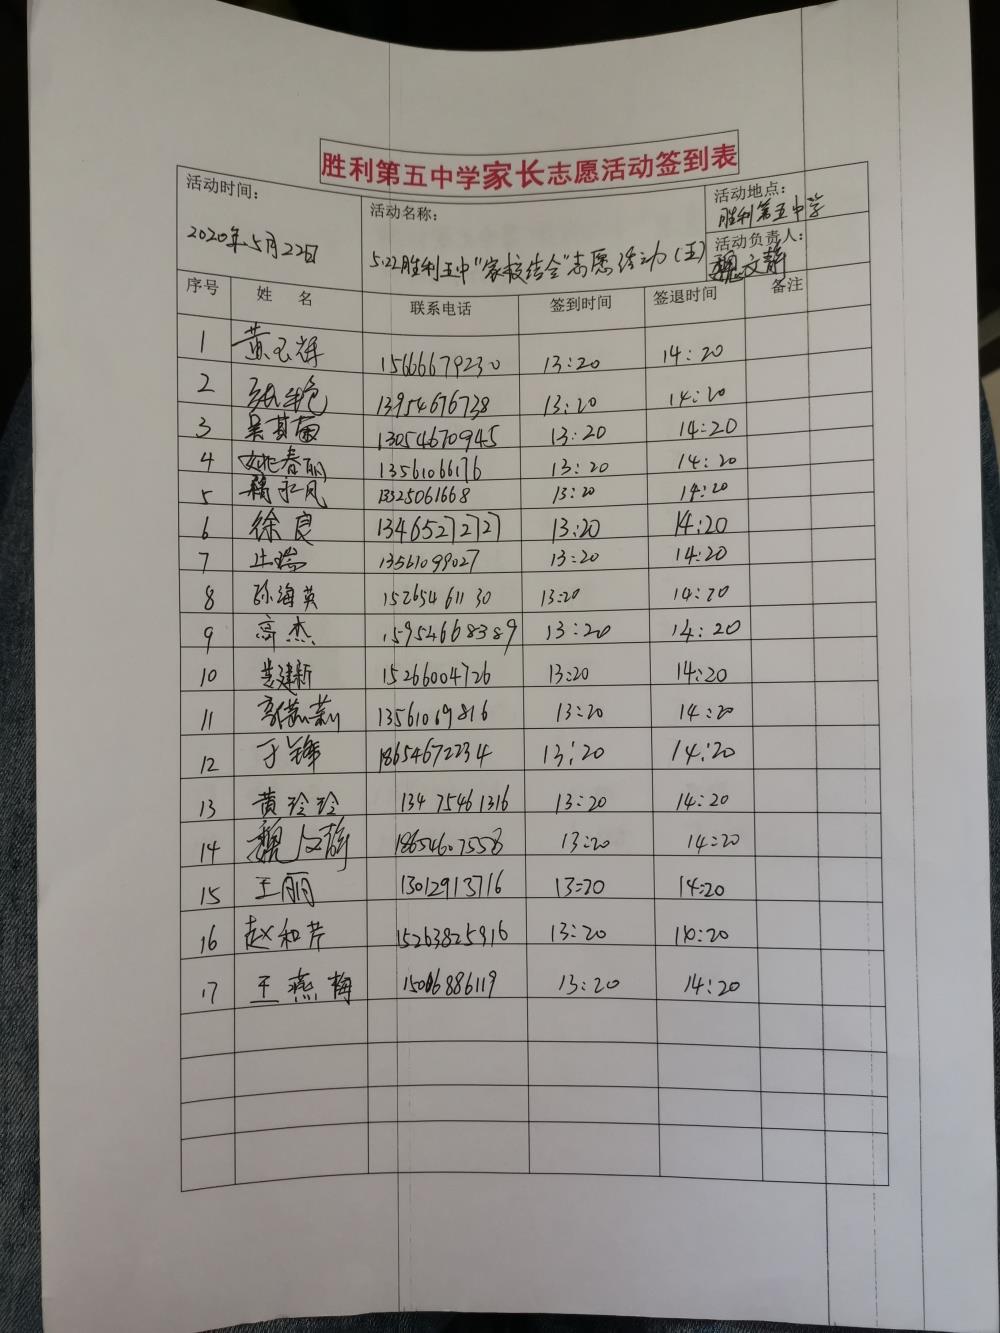 胜利第五中学家长志愿活动签到表
活动时间：
2020年5月22日
活动名称：
5.22胜利五中"家校结合"志愿活动(五)
活动地点：
胜利第五中学
活动负责人：
魏文静
序号 姓 名 联系电话 签到时间 签退时间 备注
1 黄玉辉 15666679230 13:20 14:20
2 13954676738 13:20 14:20
3 13054670945 13:20 14:20
4 姚春丽 13561066176 13:20 14:20
5 13325061668 13:20 14:20
6 徐良 13465272727 13:20 14:20
7 13561099027 13:20 14:20
8 孙海英 15265461130 13:20 14:20
9 高杰 15954668389 13:20 14:20
10 建新 15266004726 13:20 14:20
11 13561069816 13:20 14:20
12 于锋 18654672234 13:20 14:20
13 黄玲玲 13475461316 13:20 14:20
14 魏文静 18654607558 13:20 14:20
15 王丽 13012913716 13:20 14:20
16 赵和芹 15263825916 13:20 14:20
17 王燕梅 15006886119 13:20 14:20